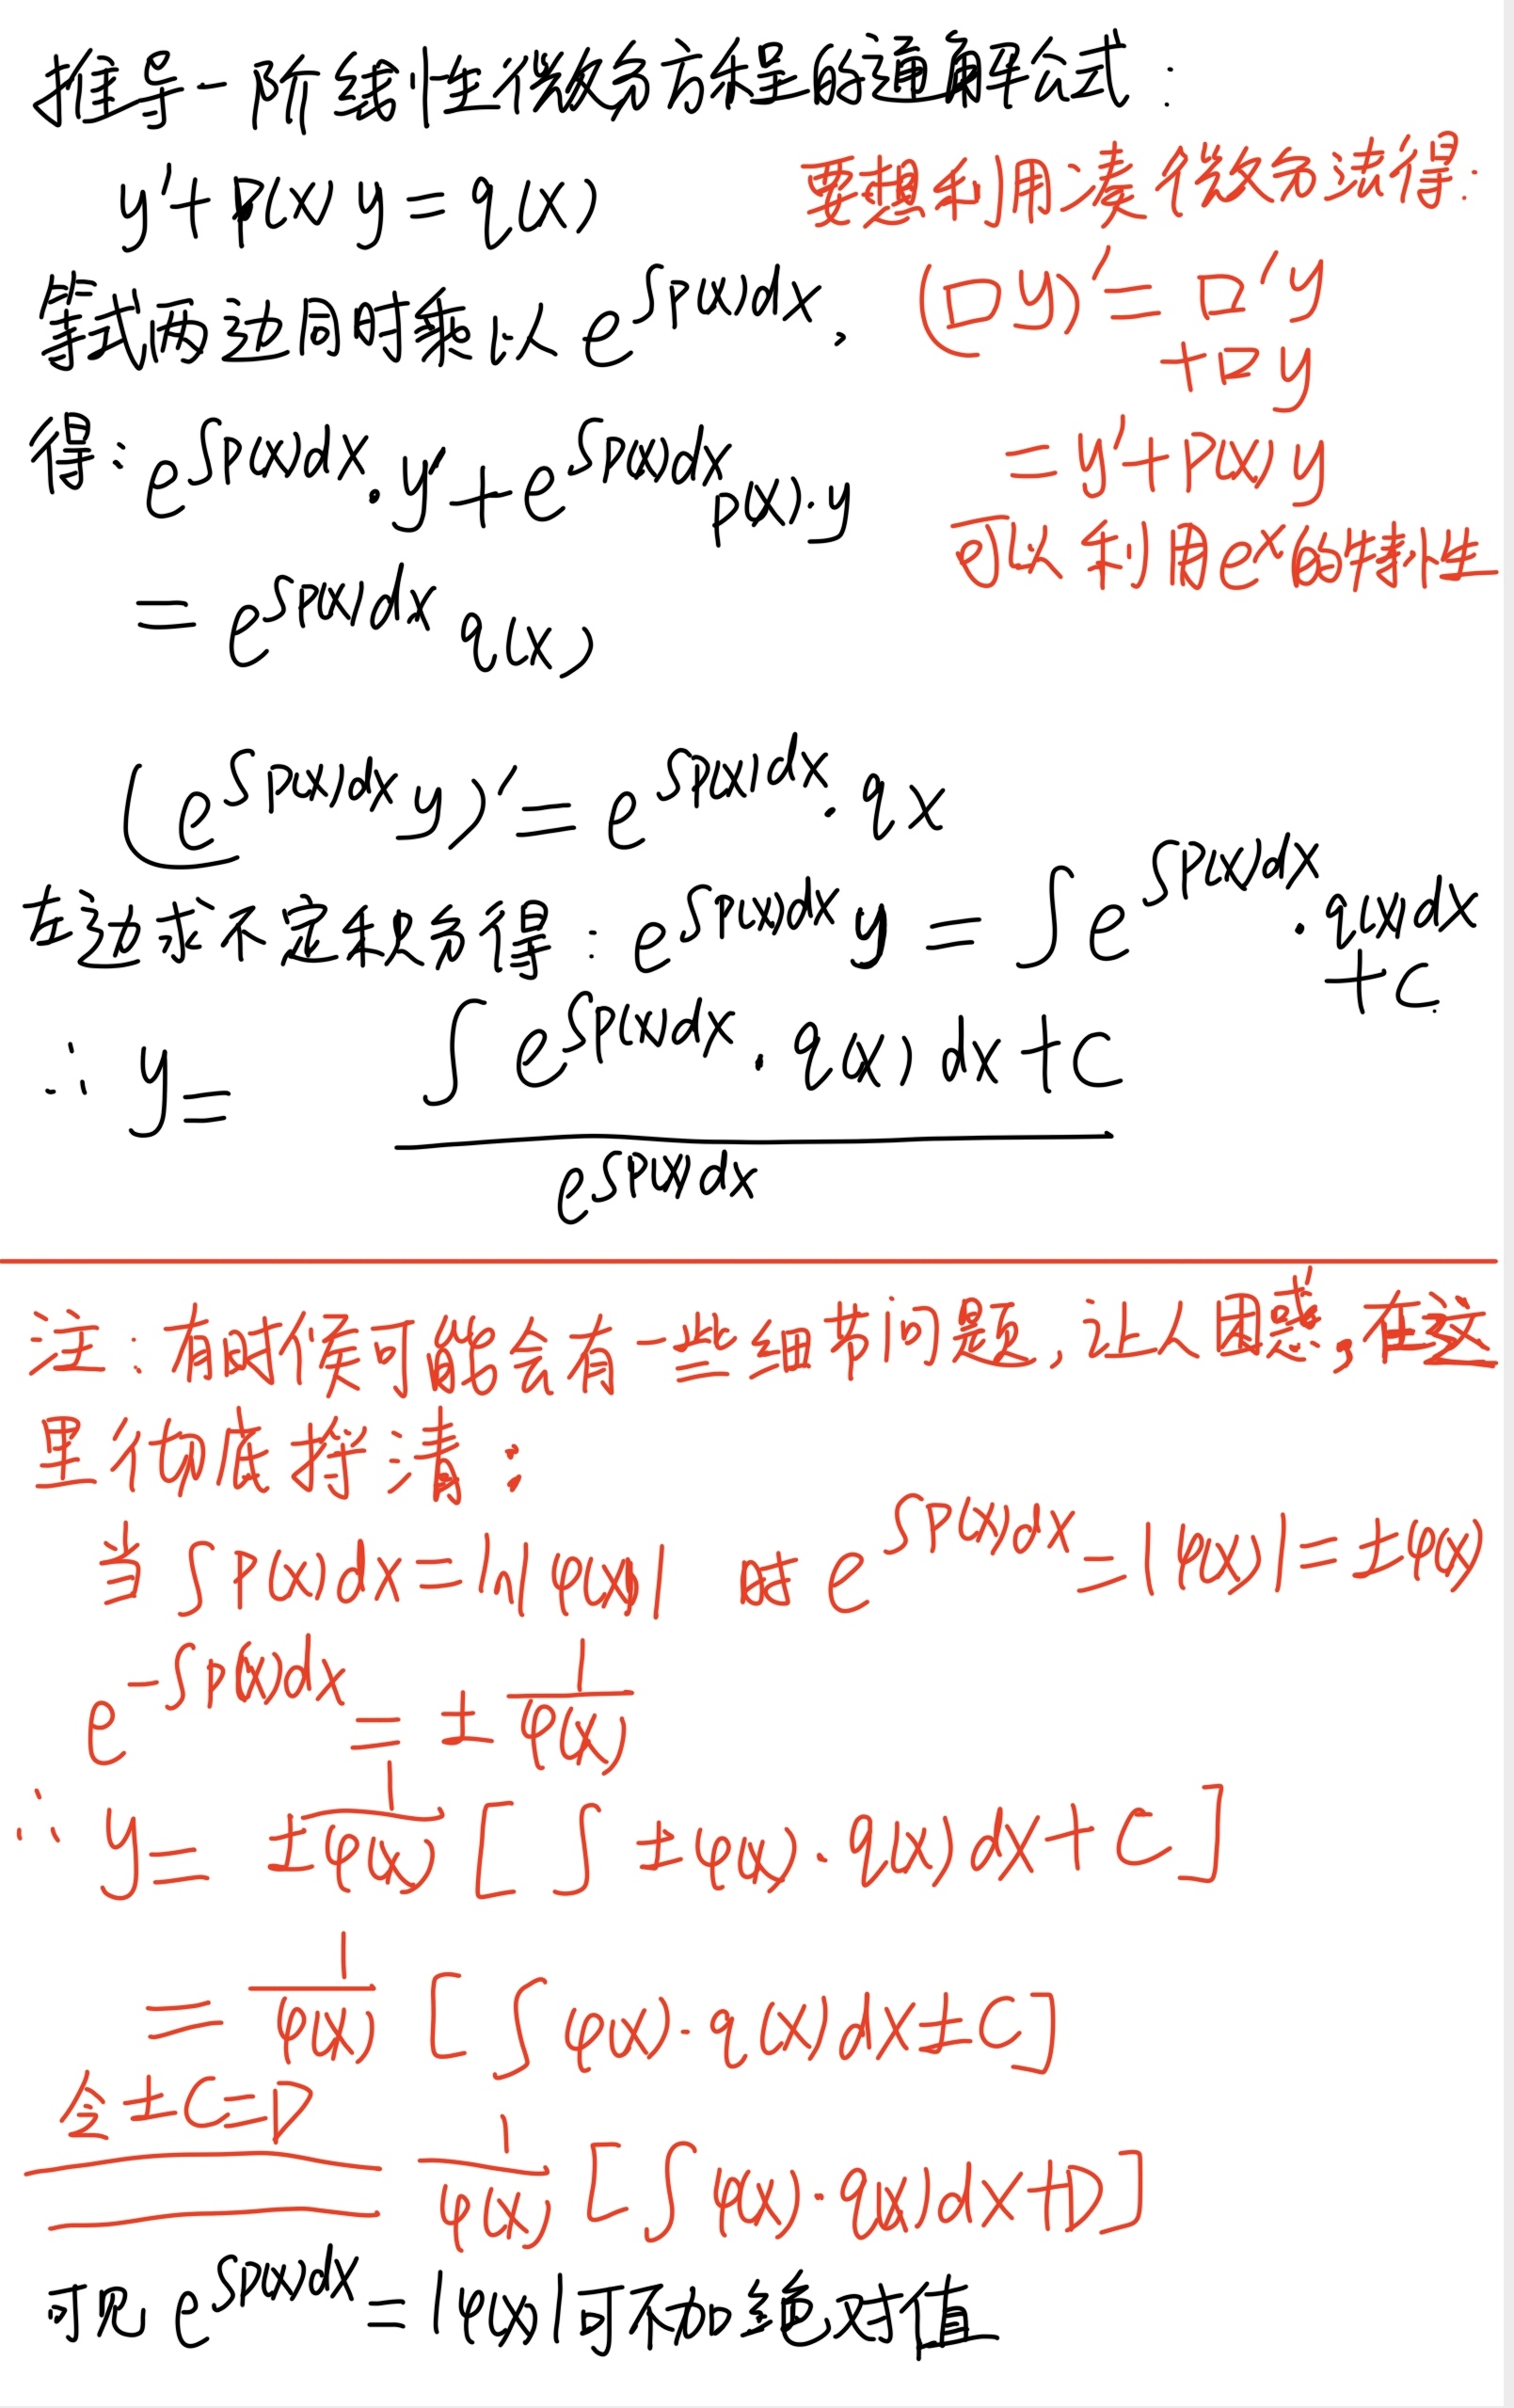 推导一阶线性微分方程的通解公式:
y′+P(x)y=q(x)
要想利用凑微分法得:
等式两边同时乘以 e^∫P(x)dx,
(口y)′=口′y
+口y
得: e^∫P(x)dx·y′+e^∫P(x)dx p(x)·y
=y′+P(x)y
可以利用e^x的特性
=e^∫P(x)dx q(x)
(e^∫P(x)dx y)′=e^∫P(x)dx·qx
左边求不定积分得: e^∫P(x)dx y=∫e^∫P(x)dx·q(x)dx
+C
∴ y= ∫e^∫P(x)dx·q(x)dx+C
e^∫P(x)dx
注:有时候可能会有一些细节问题,让人困惑,在这
里彻底捋清:
当∫P(x)dx=ln|φ(x)| 时 e^∫P(x)dx=|φ(x)|=±φ(x)
e^-∫P(x)dx=±1/φ(x)
∴ y=1/±φ(x)[∫±φ(x)·q(x)dx+C]
=1/φ(x)[∫φ(x)·q(x)dx±C]
令±C=D
1/φ(x)[∫φ(x)·q(x)dx+D]
可见 e^∫P(x)dx=|φ(x)|可不加绝对值